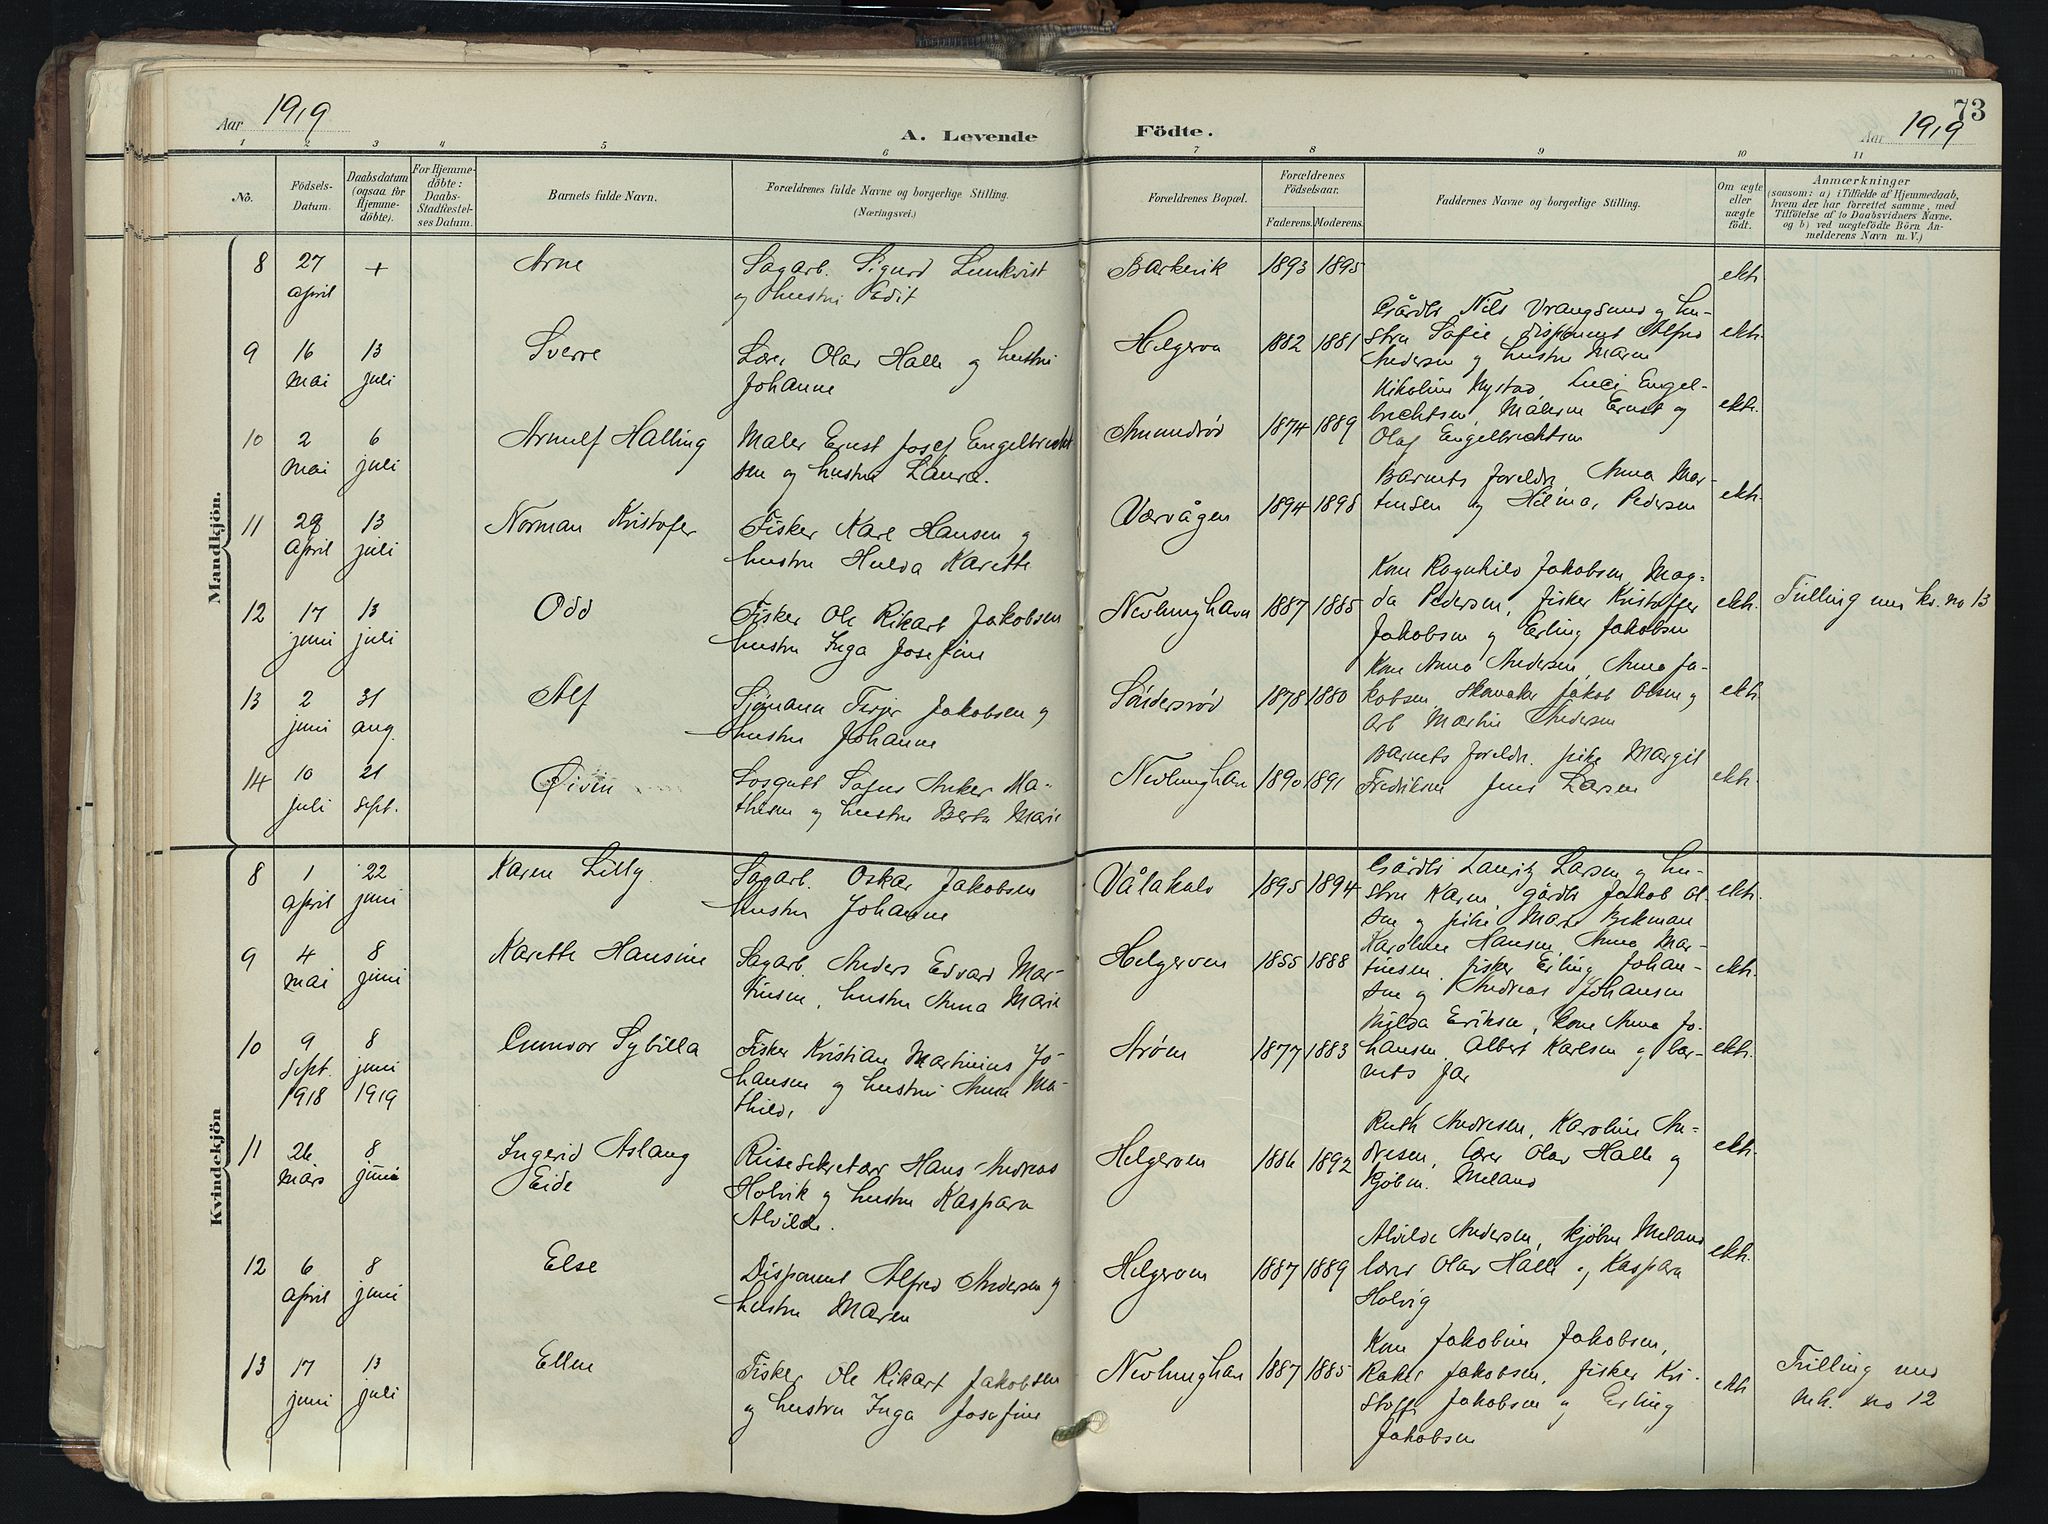 73
Aar 1919
A. Levende
Födte.
Aar 1919
1 2 3 4 5 6 7 8 9 10 11
No.
Födsels-
Datum.
Daabsdatum
(ogsaa for
Hjemme-
döbte).
For Hjemme-
döbte:
Daabs-
Stadfæstel-
ses Datum.
Barnets fulde Navn.
Forældrenes fulde Navne og borgerlige Stilling.
(Næringsvei.)
Forældrenes Bopæl.
Forældrenes
Födselsaar.
Faderens. Moderens.
Faddernes Navne og borgerlige Stilling.
Om ægte
eller
uægte
födt.
Anmærkninger
(saasom: a) i Tilfælde af Hjemmedaab,
hvem der har forrettet samme, med
Tilföielse af to Daabsvidners Navne.
og b) ved uægtefödte Börn An-
melderens Navn m. V.)
Mandkjön.
8 27 april + Arne
Sagarb. Sigurd Lunkvist
og hustru Edit
Barkevik 1893 1895 ekte
9 16 mai 13 juli Sverre
Lærer Olav Halle og hustru
Johanne
Helgeroa 1882 1881
Gårdbr Nils Vrangsund og hu-
stru Sofie disponent Alfred
Andersen og hustru Maren
ekte.
10 2 mai 6 juli Arnulf Halling
Maler Ernst Josef Engelbrecht
sen og hustru Laura.
Amundrød 1874 1889
Nikoline Nystad, Engel-
brechtsen, Malerne Ernst og
Olaf Engelbrechtsen
ekte.
11 29 april 13 juli Norman Kristofer
Fisker Karl Hansen og
hustru Hulda Karette
Værvågen 1894 1898
Barnets foreldre, Anna Mar-
tinsen og Hilmar Pedersen
ekte.
12 17 juni 13 juli Odd
Fisker Ole Rikart Jakobsen
hustru Inga Josefine
Nevlunghavn 1887 1885
Kone Ragnhild Jakobsen, Mag-
da Pedersen, fisker Kristoffer
Jakobsen og Erling Jakobsen
ekte.
Tvilling med kv. no 13
13 2 juni 31 aug. Alf
Sjømann Jakobsen og
hustru Johanne
Søndersrød 1878 1880
Kone Anna Andersen, Anna Ja-
kobsen, skomaker Jakob Olsen og
arb. Martin Andersen
ekte.
14 10 juli 21 sept. Øivin
Losgutt Sofus Anker Ma-
thisen og hustru Berta Marie
Nevlunghavn 1890 1891
Barnets foreldre. pike Margit
Fredriksen Jens Larsen
ekte.
Kvindekjön
8 1 april 22 juni Karen Lilly
Sagarb. Oskar Jakobsen
hustru Johanne
Vålakald 1895 1894
Gårdbr Lauritz Larsen og hu-
stru Karen, gårdbr Jakob Ol-
sen og pike Marie Bekman
ekte.
9 4 mai 8 juni Karette Hansine
Sagarb. Anders Edvard Mar-
tinsen, hustru Anna Marie
Helgeroen 1855 1888
Karoline Hansen, Anna Mar-
tinsen, fisker Erling Johan-
sen og Andreas Johansen
ekte.
10 9 sept. 1918 8 juni 1919 Gunvor Sybilla
Fisker Kristian Martinius Jo-
hansen og hustru Anna Ma-
thilde
Strøm 1877 1883
Milda Eriksen, kone Anna Jo-
hansen, Albert Karlsen og bar-
nets far
ekte.
11 26 mars 8 juni Ingerid Aslaug
Eide
Reisesekretær Hans Andreas
Holvik og hustru Kaspara
Alvilde.
Helgeroen 1886 1892
Ruth Andresen, Karoline An-
dresen, lærer Olav Halle og
kjøbm. Meland
ekte.
12 6 april 8 juni Else
Disponent Alfred Andersen og
hustru Maren
Helgeroen 1887 1889
Alvilde Andersen, kjøbm Meland
lærer Olav Halle og Kaspara
Holvig
ekte.
13 17 juni 13 juli Ellen
Fisker Ole Rikart Jakobsen
og hustru Inga Josefine
Nevlunghavn 1887 1885
Kone Jakobine Jakobsen,
Rakel Jakobsen, fisker Kri-
stoffer Jakobsen og Erling
Jakobsen
ekte
Tvilling med
mk. no 12